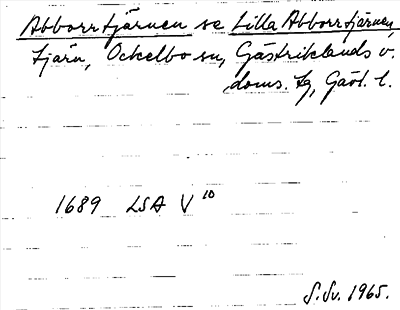 Abborrtjärnen se Lilla Abborrtjärnen,
tjärn, Ockelbo sn, Gästriklands v.
doms. tg, Gäst. l.
1689 LSA V 10
S.Sv. 1965.